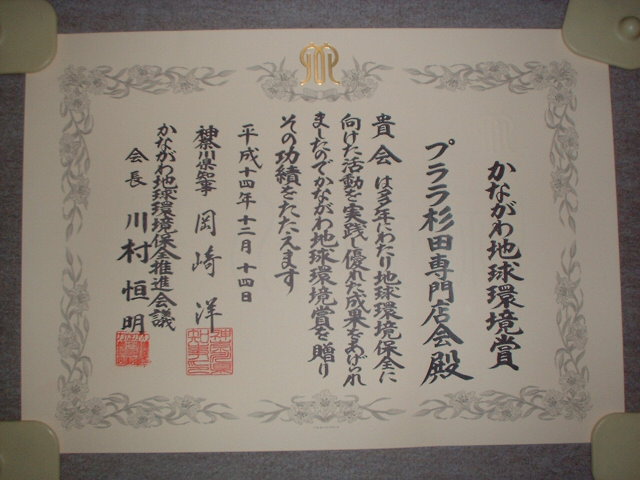 かながわ地球環境賞
プララ杉田専門店会殿
貴会は多年にわたり地球環境保全に
向けた活動を実践し優れた成果をあげられ
ましたのでかながわ地球環境賞を贈り
その功績をたたえます
平成十四年十二月十四日
神奈川県知事 岡崎洋
かながわ地球環境保全推進会議
会長 川村恒明